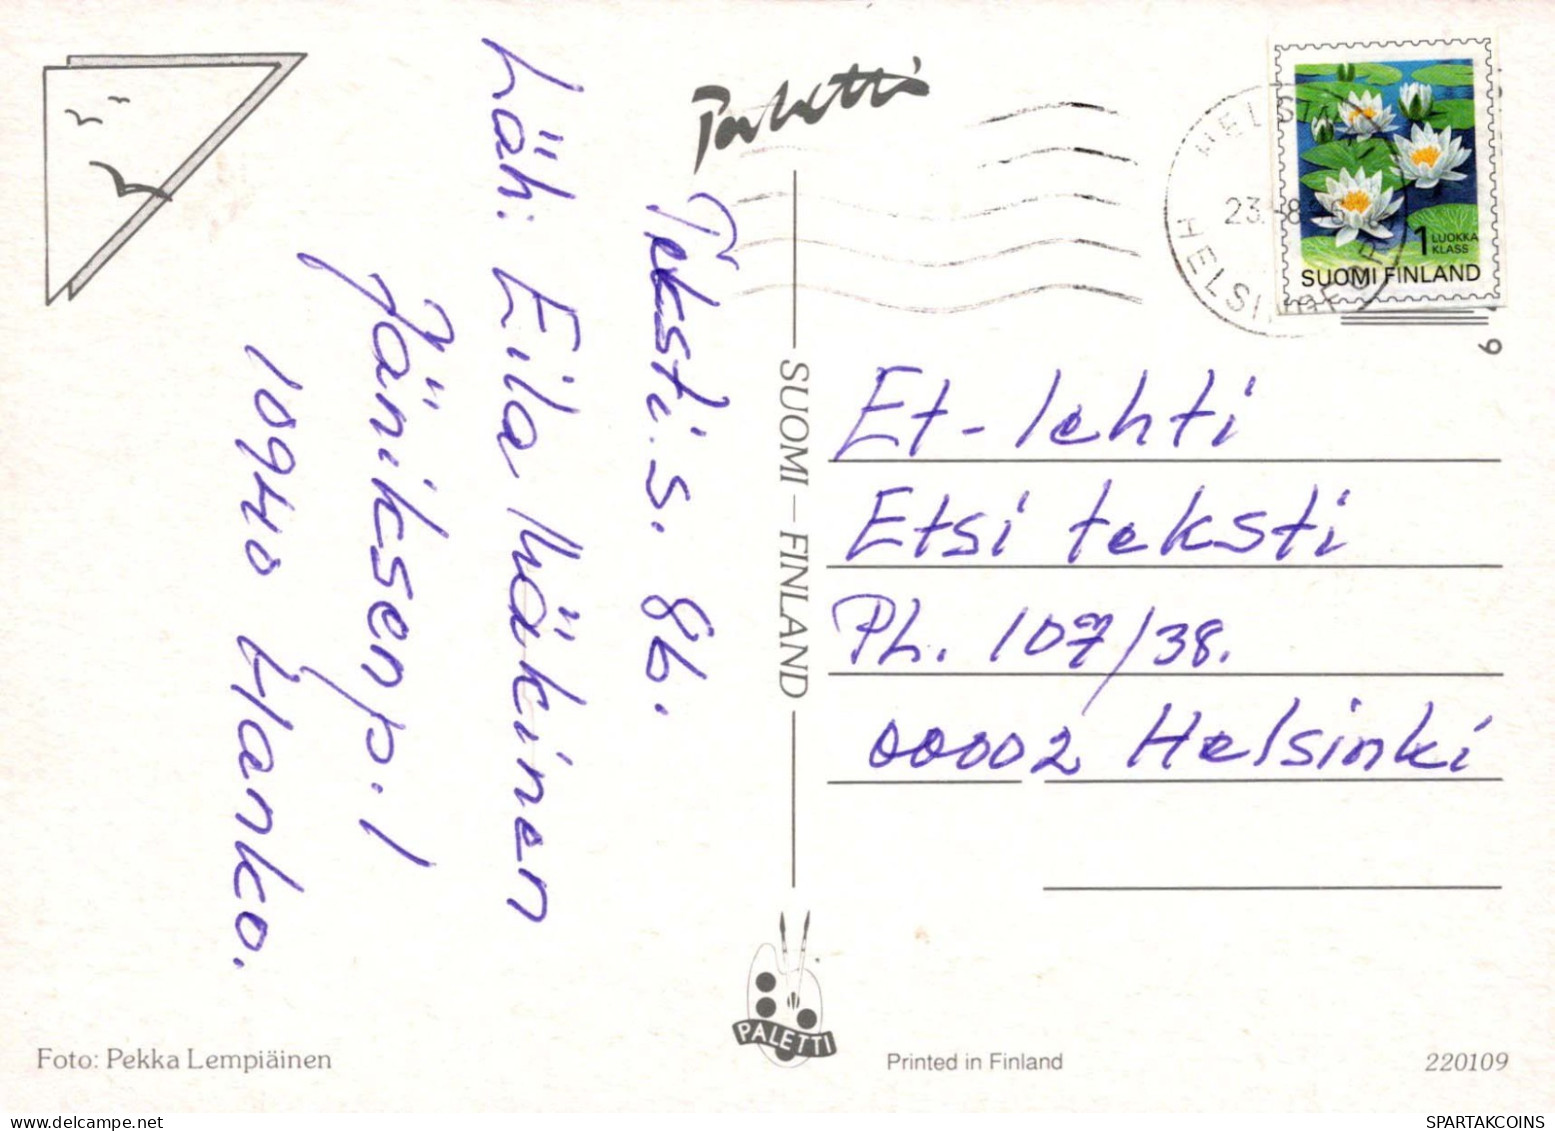 Paletti
1 LUOKKA
KLASS
SUOMI FINLAND
HELSINKI
HELSINGFORS
9
Teksti. s. 86.
Läh: Eila Mäkinen
Jäniksenp. 1
10940 Hanko.
SUOMI – FINLAND
Et-lehti
Etsi teksti
Ph. 107/38.
00002 Helsinki
PALETTI
Foto: Pekka Lempiäinen
Printed in Finland
220109
SPARTAKCOINS